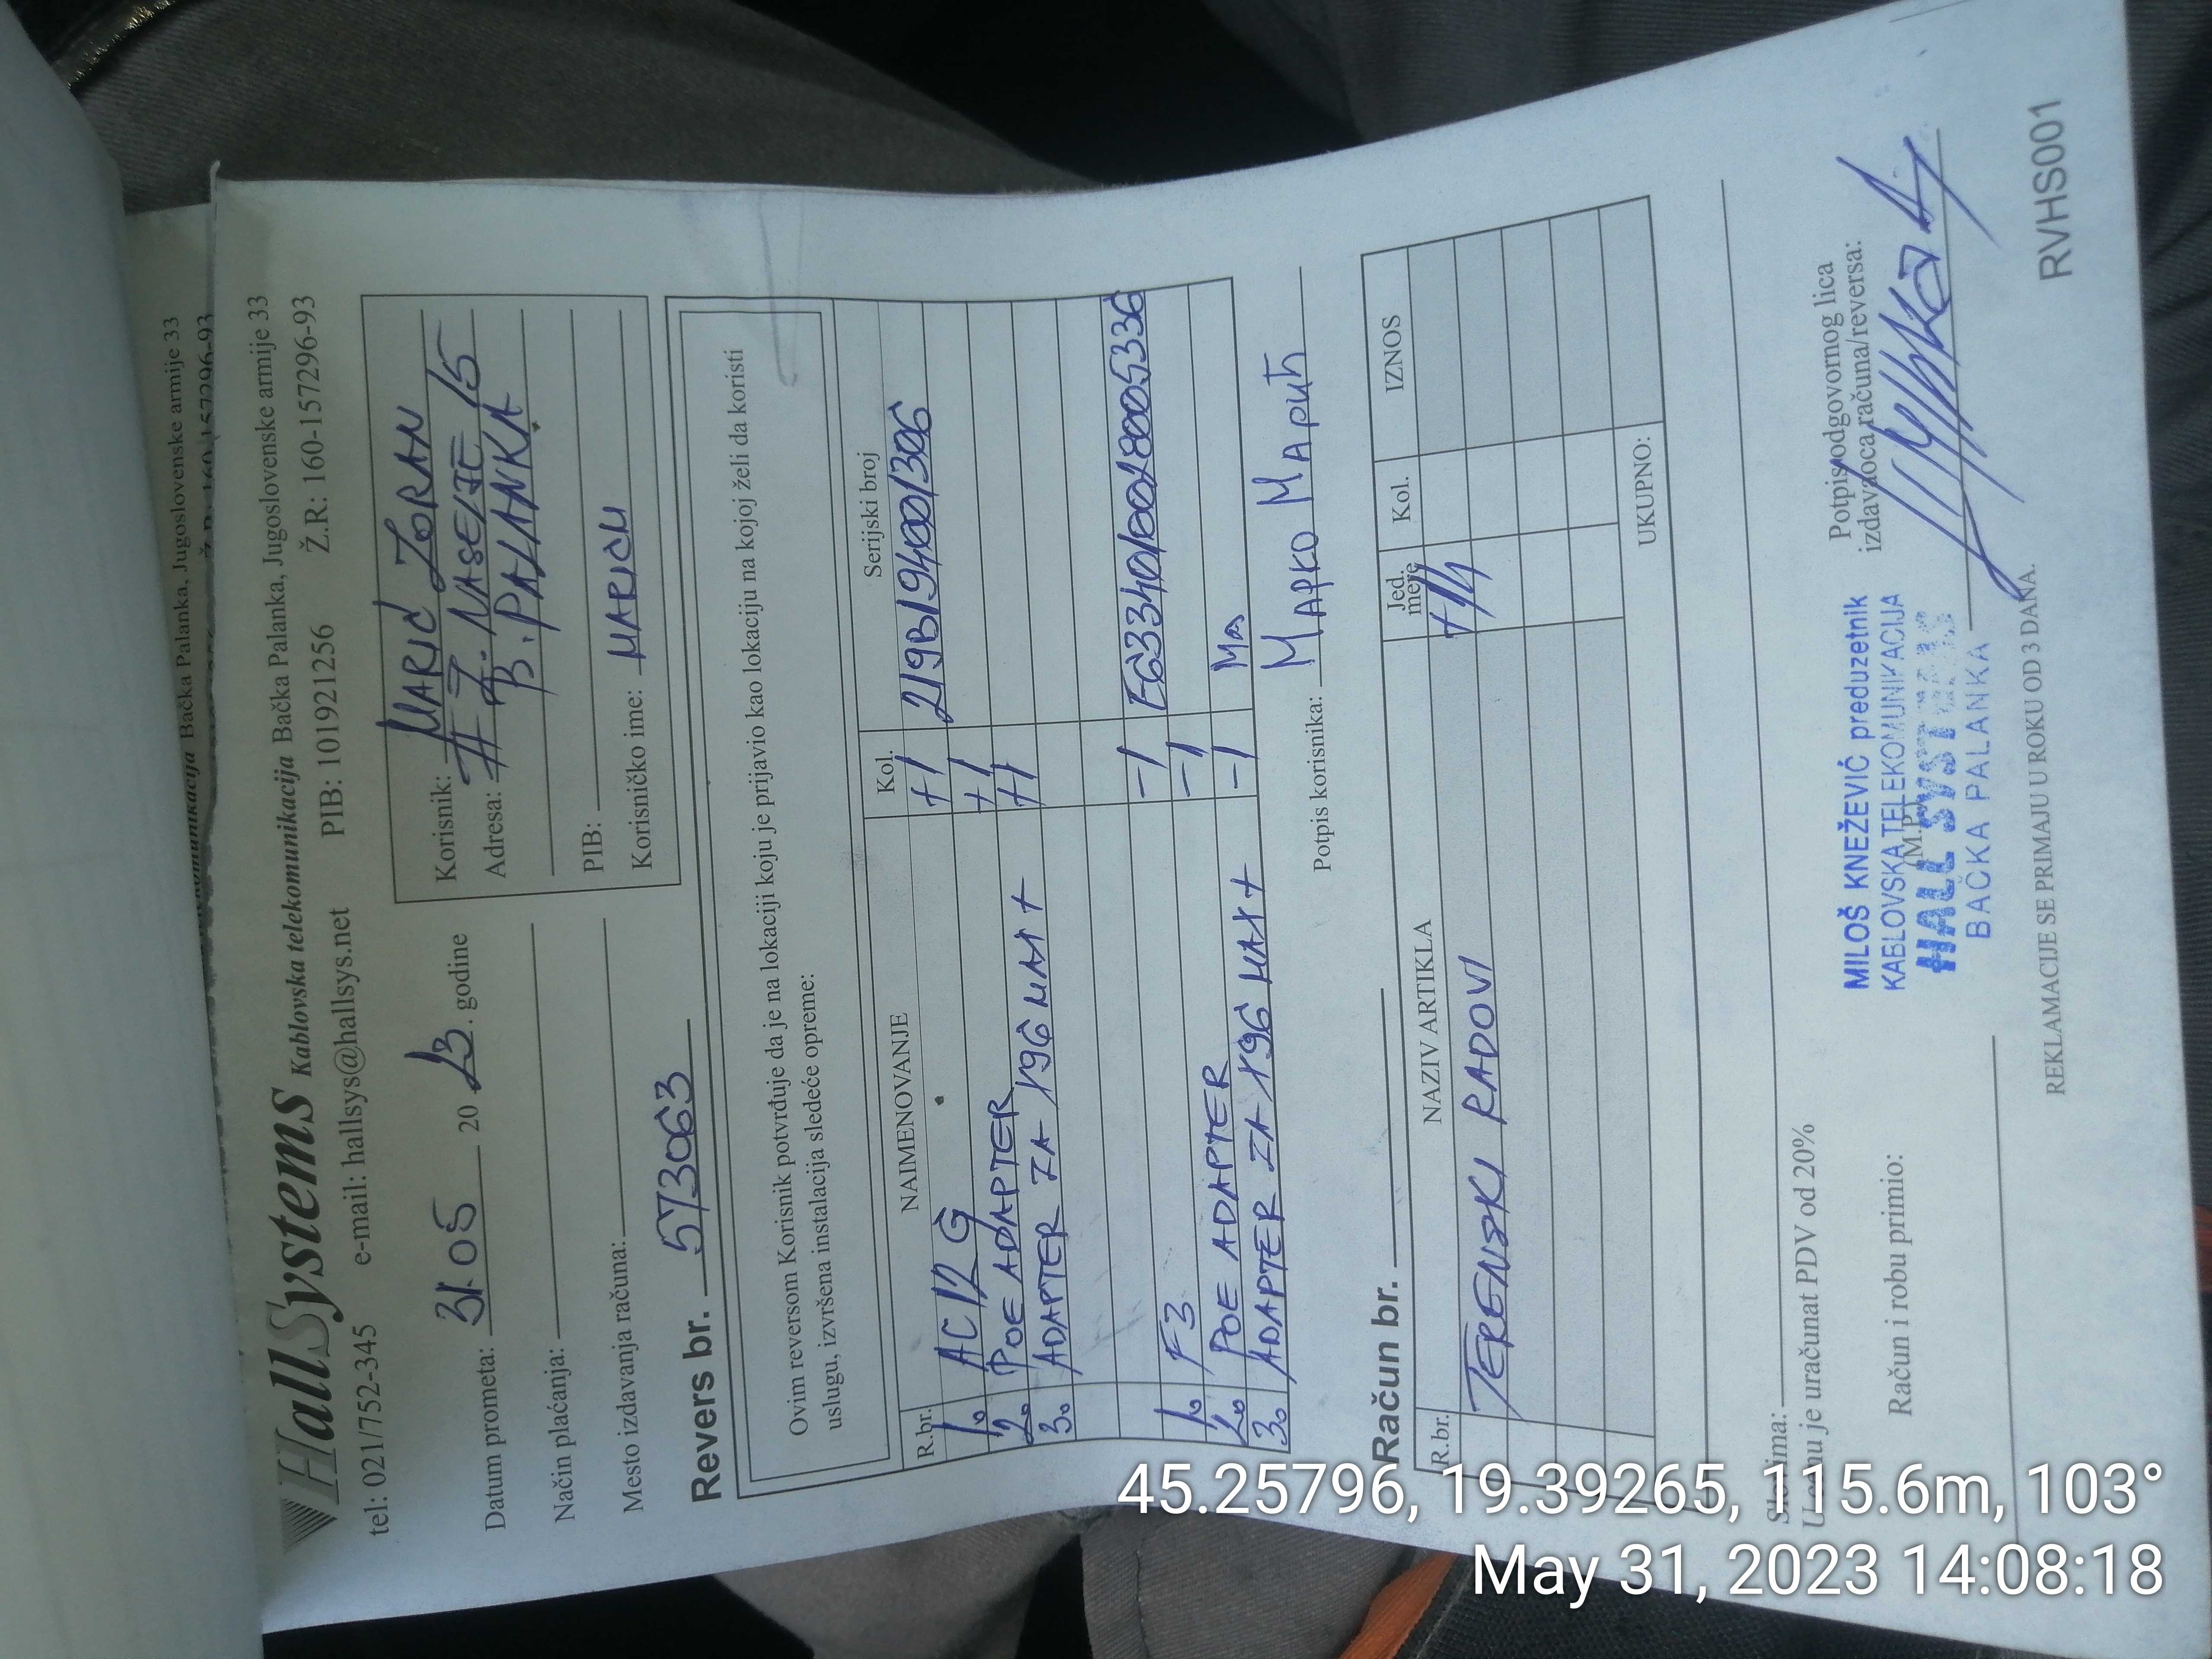 Jugoslovenske armije 33
Bačka Palanka,
HallSystems Kablovska telekomunikacija Bačka Palanka, Jugoslovenske armije 33
tel: 021/752-345 e-mail: hallsys@hallsys.net PIB: 101921256 Ž.R.: 160-157296-93
Datum prometa: 31.05 20 23. godine
Način plaćanja:
Mesto izdavanja računa:
Korisnik: MARIĆ ZORAN
Adresa: 15
B. PALANKA
PIB:
Korisničko ime: MARICM
Revers br. 573063
Ovim reversom Korisnik potvrđuje da je na lokaciji koju je prijavio kao lokaciju na kojoj želi da koristi
uslugu, izvršena instalacija sledeće opreme:
R.br. NAIMENOVANJE Kol. Serijski broj
1. AC12 G +1 219B194001306
2. POE ADAPTER +1
3. ADAPTER ZA +1
1. F3 -1
2. POE ADAPTER -1
3. ADAPTER ZA -1
Potpis korisnika: Марко Марић
Račun br.
R.br. NAZIV ARTIKLA Jed. mere Kol. IZNOS
TERENSKI RADOVI
UKUPNO:
Slovima:
U cenu je uračunat PDV od 20%
Račun i robu primio:
(M.P.)
MILOŠ KNEŽEVIĆ preduzetnik
KABLOVSKA TELEKOMUNIKACIJA
HALL SYSTEMS
BAČKA PALANKA
Potpis odgovornog lica
izdavaoca računa/reversa:
REKLAMACIJE SE PRIMAJU U ROKU OD 3 DANA.
RVHS001
45.25796, 19.39265, 115.6m, 103°
May 31, 2023 14:08:18